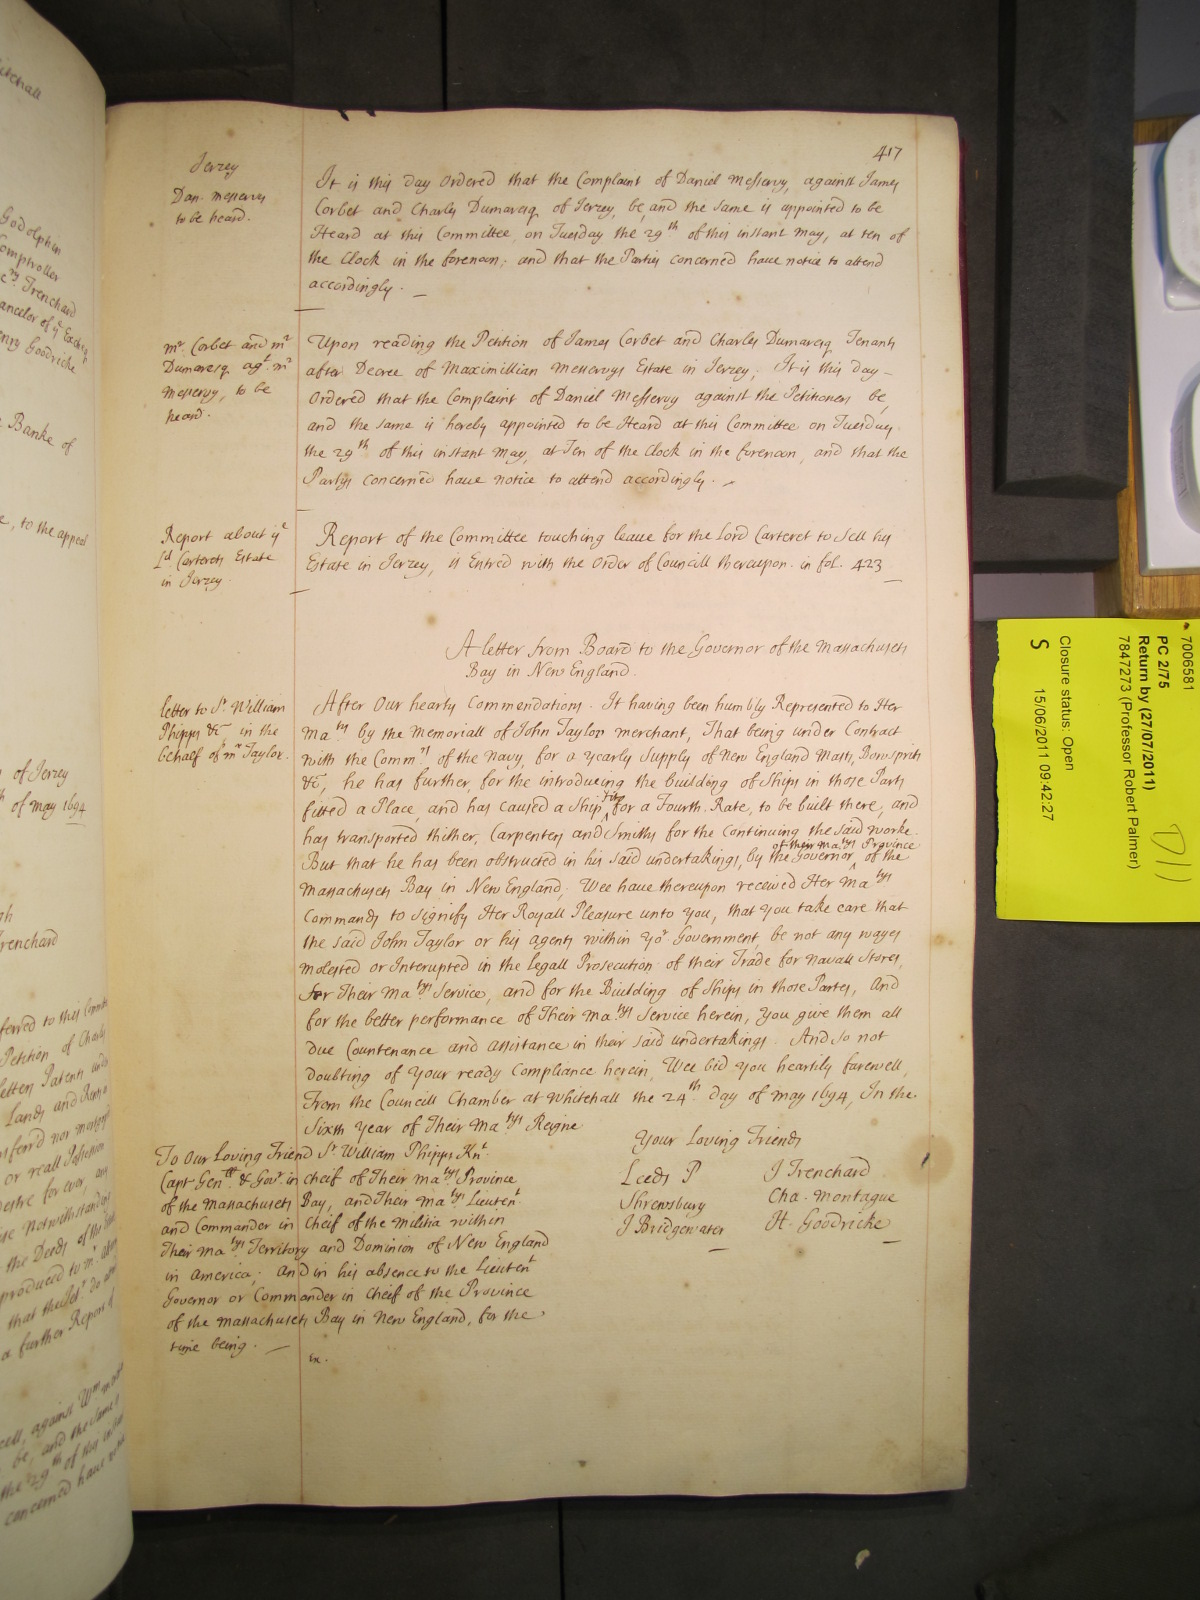 417
Jerzey
Dan. Messervy
to be heard.
It is this day Ordered that the Complaint of Daniel Messervy, against James
Corbet and Charles Dumaresq of Jerzey, be, and the same is appointed to be
Heard at this Committee on Tuesday the 29th of this instant May, at ten of
the Clock in the forenoon; and that the Parties concerned have notice to attend
accordingly. _
Mr. Corbet and Mr
Dumaresq agt. Mr
Messervy, to be
heard.
Upon reading the Petition of James Corbet and Charles Dumaresq Tenants
after Decree of Maximillian Messervys Estate in Jerzey; It is this day -
Ordered that the Complaint of Daniel Messervy against the Petitioners be,
and the same is hereby appointed to be Heard at this Committee on Tuesday
the 29th of this instant May, at Ten of the Clock in the forenoon, and that the
Partys concerned have notice to attend accordingly. -
Report about ye
Ld Carterets Estate
in Jerzey.
Report of the Committee touching leave for the Lord Carteret to sell his
Estate in Jerzey, is Entred with the Order of Councill thereupon. in fol. 423
A letter from Board to the Governor of the Massachusets
Bay in New England.
letter to Sr. William
Phipps &c in the
behalf of Mr Taylor.
After Our hearty Commendations. It having been humbly Represented to Her
Maty by the Memoriall of John Taylor merchant, That being under Contract
with the Commrs of the Navy, for a yearly Supply of New England Masts, Bowsprits
&c, he has further, for the introducing the building of Ships in those Parts
fitted a Place, and has caused a Ship fitt for a Fourth Rate, to be built there, and
has transported thither, Carpenters and Smiths for the Continuing the said worke.
But that he has been obstructed in his said undertakings, by the Governor of their Matys Province of the
Massachusets Bay in New England; Wee have thereupon received Her Matys
Commands to signify Her Royall Pleasure unto you, that you take care that
the said John Taylor or his agents within yor Government, be not any wayes
molested or Interupted in the Legall Prosecution of their Trade for Navall Stores,
for Their Matys Service, and for the Building of Ships in those Partes, And
for the better performance of Their Matys Service herein, You give them all
due Countenance and Assistance in their said undertakings. And so not
doubting of your ready Compliance herein, Wee bid you heartily farewell,
From the Councill Chamber at Whitehall the 24th. day of May 1694, In the
Sixth year of Their Matys Reigne
Your Loving Friends
Leeds P J Trenchard
Shrewsbury Cha. Montague
J Bridgewater H. Goodricke
To Our Loving Friend Sr William Phipps Knt.
Capt. Genll & Govr. in Cheif of Their Matys Province
of the Massachusets Bay, and Their Matys Lieutent.
and Commander in Cheif of the Militia within
Their Matys Territory and Dominion of New England
in America; And in his absence to the Lieutent
Governor or Commander in Cheif of the Province
of the Massachusets Bay in New England, for the
time being. _
ex.
Godolphin
Comptroller
Trenchard
Henry Goodricke
Banke of
, to the appeal
of Jerzey
of May 1694
Trenchard
Petition of Charles
Letters Patents
Lands and
or reall Possession
desire for ever, any
notwithstanding
the Deeds of the
produced to
a further Report of
be, and the same is
the 29th of this instant
concerned have
7006581
PC 2/75
Return by (27/07/2011)
7847273 (Professor Robert Palmer)
Closure status: Open
S
15/06/2011 09:42:27